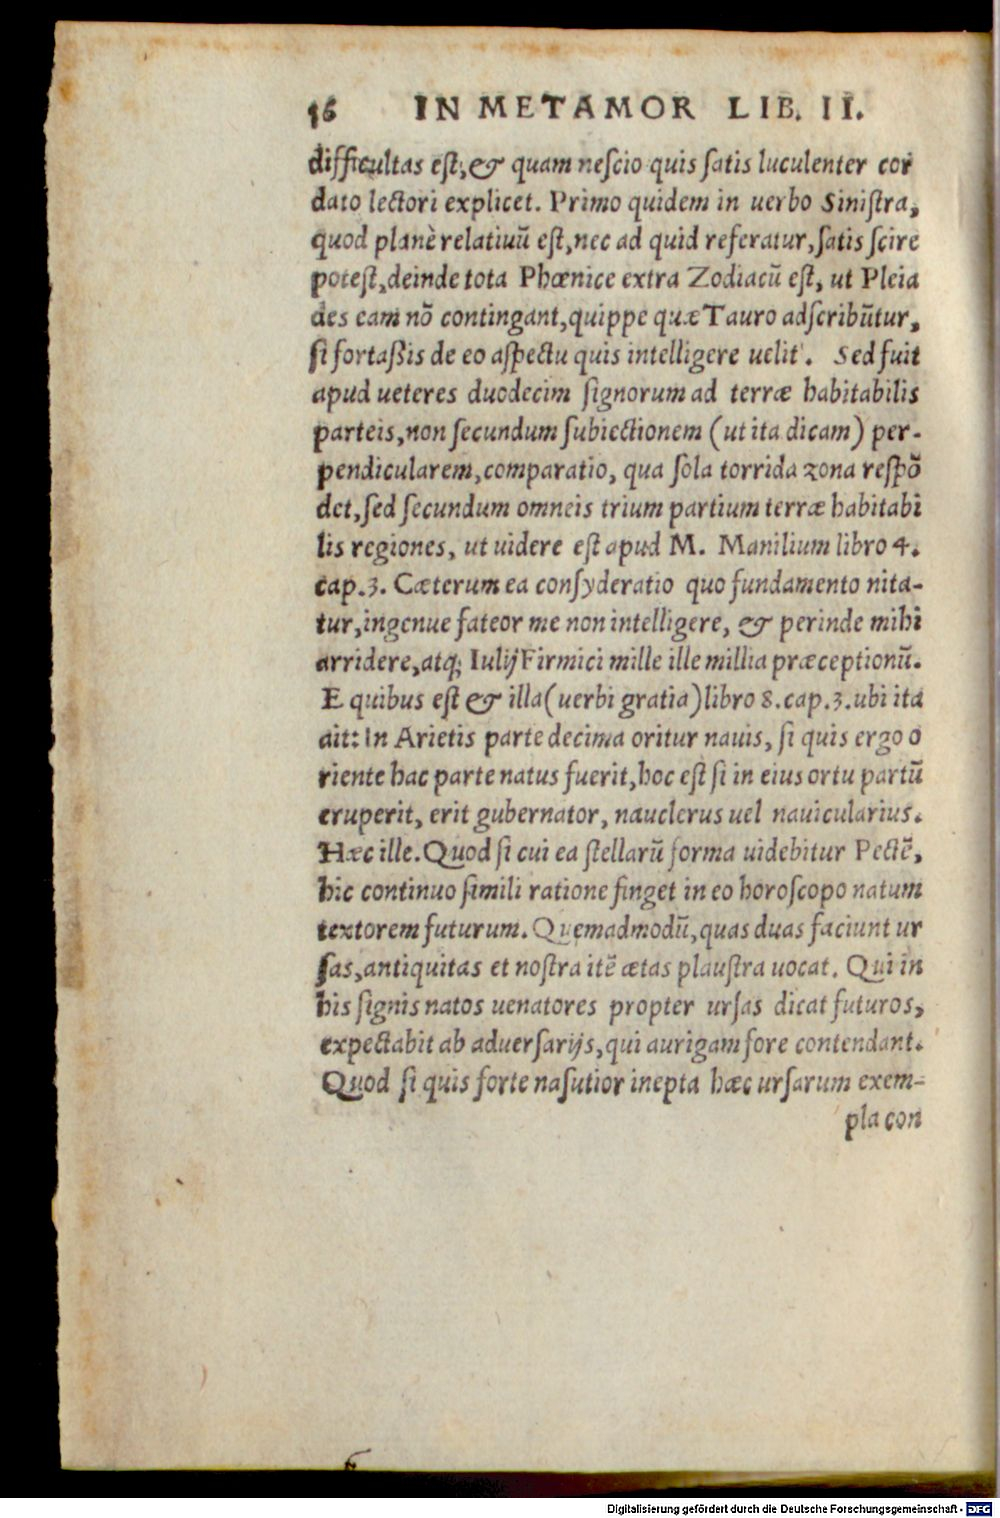 56 IN METAMOR LIB. II.
difficultas eſt, & quam neſcio quis ſatis luculenter cor
dato lectori explicet. Primo quidem in uerbo Siniſtra,
quod planè relatiuū eſt, nec ad quid referatur, ſatis ſcire
poteſt, deinde tota Phœnice extra Zodiacū eſt, ut Pleia
des eam nō contingant, quippe quæ Tauro adſcribūtur,
ſi fortaſsis de eo aſpectu quis intelligere uelit. Sed fuit
apud ueteres duodecim ſignorum ad terræ habitabilis
parteis, non ſecundum ſubiectionem (ut ita dicam) per-
pendicularem, comparatio, qua ſola torrida zona reſpō
det, ſed ſecundum omneis trium partium terræ habitabi
lis regiones, ut uidere eſt apud M. Manilium libro 4.
cap. 3. Cæterum ea conſyderatio quo fundamento nita-
tur, ingenue fateor me non intelligere, & perinde mihi
arridere, atq; Iulij Firmici mille ille millia præceptionū.
E quibus eſt & illa (uerbi gratia) libro 8. cap. 3. ubi ita
ait: In Arietis parte decima oritur nauis, ſi quis ergo o
riente hac parte natus fuerit, hoc eſt ſi in eius ortu partū
eruperit, erit gubernator, nauclerus uel nauicularius.
Hæc ille. Quod ſi cui ea ſtellarū forma uidebitur Pectē,
hic continuo ſimili ratione finget in eo horoſcopo natum
textorem futurum. Quemadmodū, quas duas faciunt ur
ſas, antiquitas et noſtra itē ætas plauſtra uocat. Qui in
his ſignis natos uenatores propter urſas dicat futuros,
expectabit ab aduerſarijs, qui aurigam fore contendant.
Quod ſi quis forte naſutior inepta hæc urſarum exem-
pla con
Digitalisierung gefördert durch die Deutsche Forschungsgemeinschaft - DFG